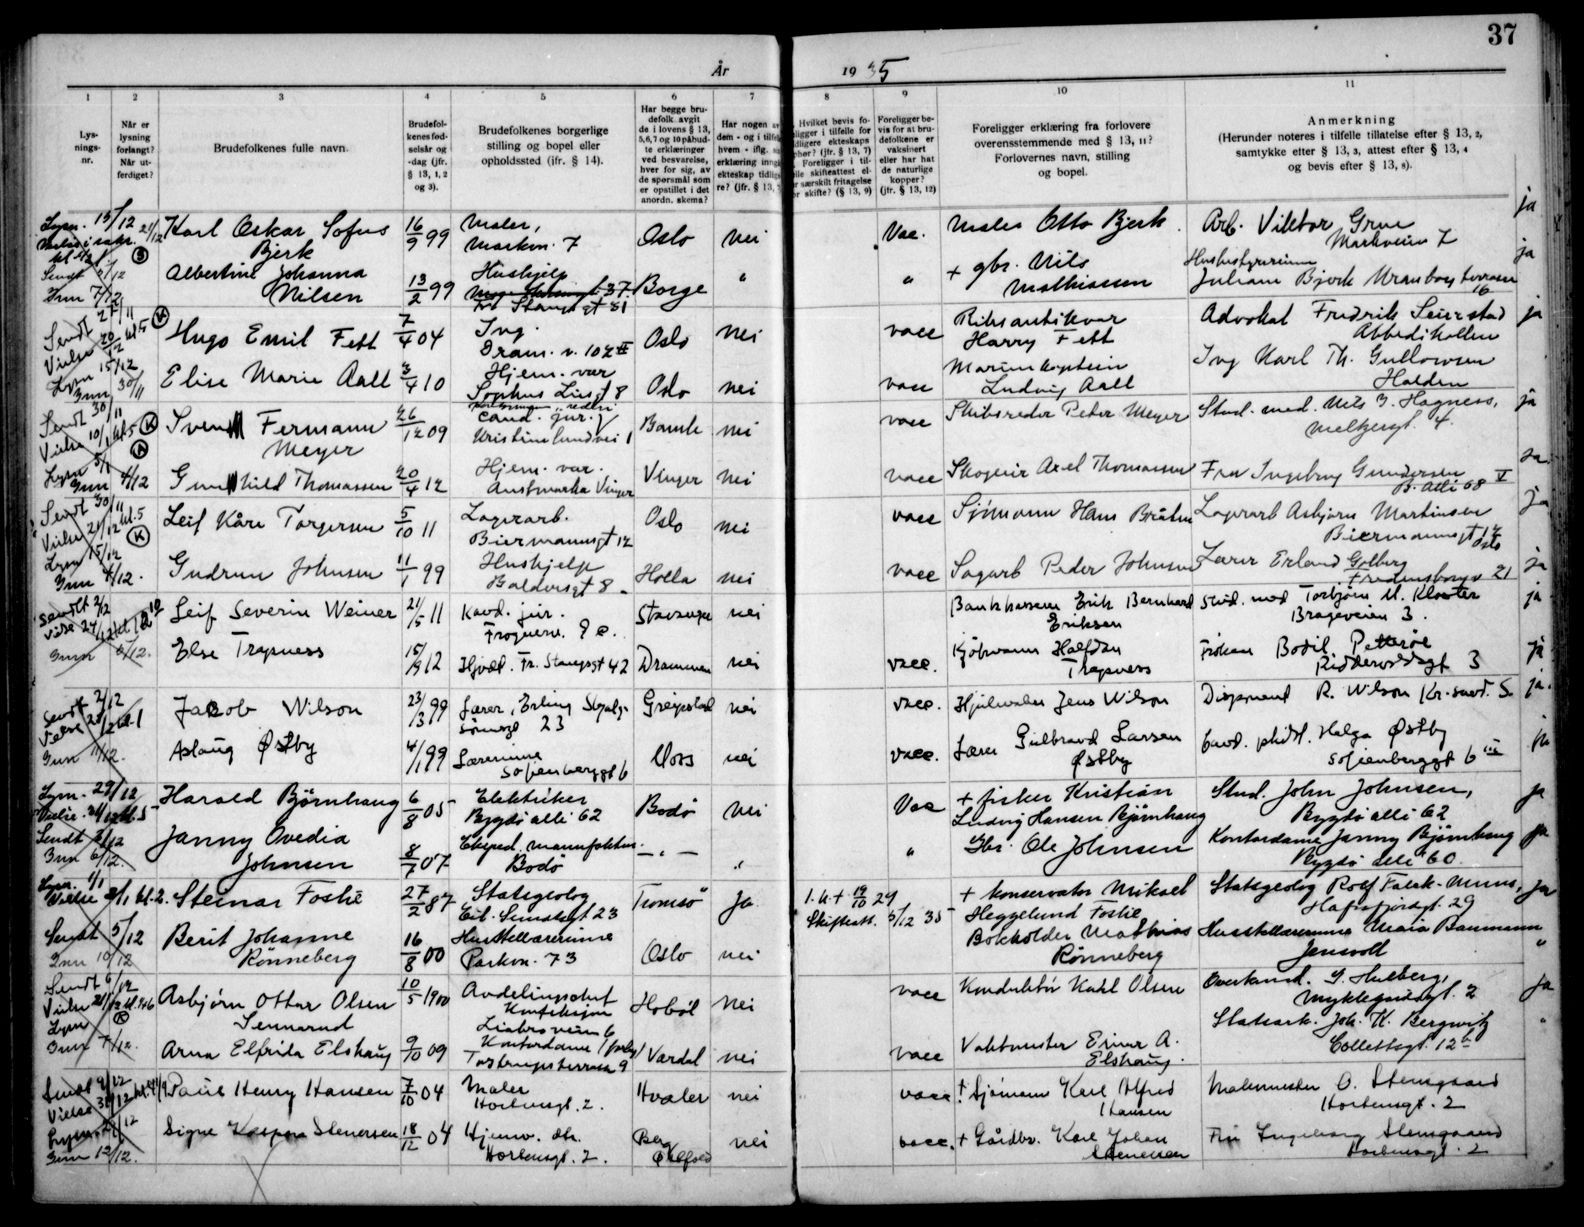 37
År 1935
1 2 3 4 5 6 7 8 9 10 11
Lysnings-nr.
Når er lysning forlangt? Når utferdiget?
Brudefolkenes fulle navn.
Brudefolkenes fødselsår og -dag (jfr. § 13, 1, 2 og 3).
Brudefolkenes borgerlige stilling og bopel eller opholdssted (jfr. § 14).
Har begge brudefolk avgit de i lovens § 13, 5,6,7 og 10 påbudte erklæringer ved besvarelse, hver for sig, av de spørsmål som er opstillet i det anordn. skema?
Har nogen av
dem - og i tilfe
hvem - iflg.
erklæring inng
ekteskap tidlig
re? (jfr. § 13, 7
Hvilket bevis fo-
ligger i tilfelle for
dligere ekteskaps
pher? (jfr. § 13, 7)
Foreligger i til-
lle skifteattest el-
r særskilt fritagelse
r skifte? (§ 13, 9)
Foreligger bevis for at brudefolkene er vaksinert eller har hat de naturlige kopper? (jfr. § 13, 12)
Foreligger erklæring fra forlovere overensstemmende med § 13, 11? Forlovernes navn, stilling og bopel.
Anmerkning
(Herunder noteres i tilfelle tillatelse efter § 13, 2, samtykke efter § 13, 3, attest efter § 13, 4 og bevis efter § 13, 8).
Karl Oskar Sofus Bjerk 16/9 99 Maler, Markvn. 7 Oslo nei Vac. Maler Otto Bjerk. Arb. Viktor Grue Markveien 7 ja
Albertine Johanna Nilsen 13/2 99 Hushjelp Fr. Stangsgt 31 Borge " " + gbr. Nils Mathiassen Husbestyrerinne Juliane Bjerk Uranborg terrasse 16 ja
Sendt 27/11
Vielse 20/12 kl. 5 (K)
Lysn 15/12
Inn 30/11
Hugo Emil Fett 7/4 04 Ing. Dram. v. 102 II Oslo nei vacc Riksantikvar Harry Fett Advokat Fredrik Seierstad Abbedikollen ja
Elise Marie Aall 3/4 10 Hjem. vær Sophus Liesgt 8 Oslo nei vacc Ludvig Aall Ing Karl Th. Gullowsen Halden
Sendt 30/11
Vielse 10/1 kl. 5 (K)
Lysn 5/1
Inn 4/12
Svenn Fermann Meyer 26/12 09 cand. jur. Kristinelundvei 1 Bamle nei vacc Skibsreder Peter Meyer Stud. med. Nils B. Hagness, Meltzersgt. 4. ja
Gunnhild Thomassen 20/4 12 Hjem. vær. Austmarka Vinger Vinger nei vacc Skogeier Axel Thomassen Fru Ingeborg Gundersen B. Allé 68 V ja
Sendt 30/11
Vielse 21/12 kl. 5 (K)
Lysn 15/12
Inn 4/12.
Leif Kåre Torgersen 5/10 11 Lagerarb. Biermannsgt 12 Oslo nei vacc Sjömann Hans Bråten Lagerarb Asbjørn Martinsen Biermannsgt 12 Oslo ja
Gudrun Johnsen 11/1 99 Hushjelp Baldersgt 8. Holla nei vacc Sagarb Peder Johnsen Lærer Erland Golberg Fredensborgv 21 ja
Sendt 2/12
Inn 6/12.
Leif Severin Weiner 21/5 11 kand. jur. Frognerv. 9 c. Stavanger nei Bankkasserer Erik Bernhard Eriksen Stud. med Torbjørn M. Kloster Brageveien 3. ja
Else Trapness 15/9 12 Hjvæd. Fr. Stangsgt 42 Drammen nei vacc. Kjöbmann Halfdan Trapness Fröken Bodil Petterøe Riddervoldsgt 3 ja
Sendt 2/12
Inn 11/12.
Jakob Wilson 23/3 99 Lærer, Erling Skjalgssönsgt 23 Greipstad nei vacc. Hjulmaker Jens Wilson Disponent R. Wilson Kr.sand. S ja.
Aslaug Østby 4/1 99 Lærerinne Sofienberggt 6 Moss nei vacc. Lærer Gulbrand Larsen Østby cand. philol. Helga Østby Sofienberggt 6 III ja
Lysn. 29/12
Vielse 21/12 kl. 5
Sendt 2/12
Inn 6/12.
Harald Bjørnhaug 6/8 05 Elektriker Bygdøallé 62 Bodø nei Vac + fisker Kristian Ludvig Hansen Bjørnhaug Stud. John Johnsen, Bygdöallé 62 ja
Janny Ovedia Johnsen 8/7 07 Eksped. manufaktur. Bodø — " — " " Gbr. Ole Johnsen Kontordame Janny Bjørnhaug Bygdö allé 60. ja
Lysn. 1/1
Vielse 2/1 kl. 2.
Sendt 5/12
Inn 10/12
Steinar Foslie 27/2 87 Statsgeolog Eil. Sundtsgt. 23 Tromsø Ja 1. h. + 19/10 29 Skifteatt. 5/12 35 + konservator Mikael Heggelund Foslie Statsgeolog Rolf Falck-Muus, Hafrsfjordgt. 29 ja
Berit Johanne Rönneberg 16/8 00 Husstellærerinne Parkvn. 73 Oslo nei Bokholder Mathias Rønneberg Husstellærerinne Maia Baumann Jensvoll "
Sendt 6/12
Lysn (K)
Inn 7/12.
Asbjørn Ottar Olsen Sennerud 10/5 1900 Avdelingschef Konfeksjon Liabroveien 6 Hobøl nei vacc Konduktør Karl Olsen Overkond. G. Hulberg, Myklegårdsgt. 2 ja
Arna Elfrida Elshaug 9/10 09 Kontordame Tostrupsterrasse 9 Vardal nei vacc Vaktmester Einar A. Elshaug. Statsark. Joh. K. Bergwitz Collettsgt. 12 "
Sendt 9/12
Inn 12/12.
Paul Henry Hansen 7/10 04 Maler Hortensgt. 2. Hvaler nei vacc. † Sjømann Karl Alfred Hansen Malermester O. Stensgaard Hortensgt. 2
Signe Kaspara Stenersen 18/12 04 Hjemv. dtr. Hortensgt. 2. Berg Østfold nei vacc. + Gårdbr. Karl Johan Stenersen Fru Ingeborg Stensgaard Hortensgt. 2